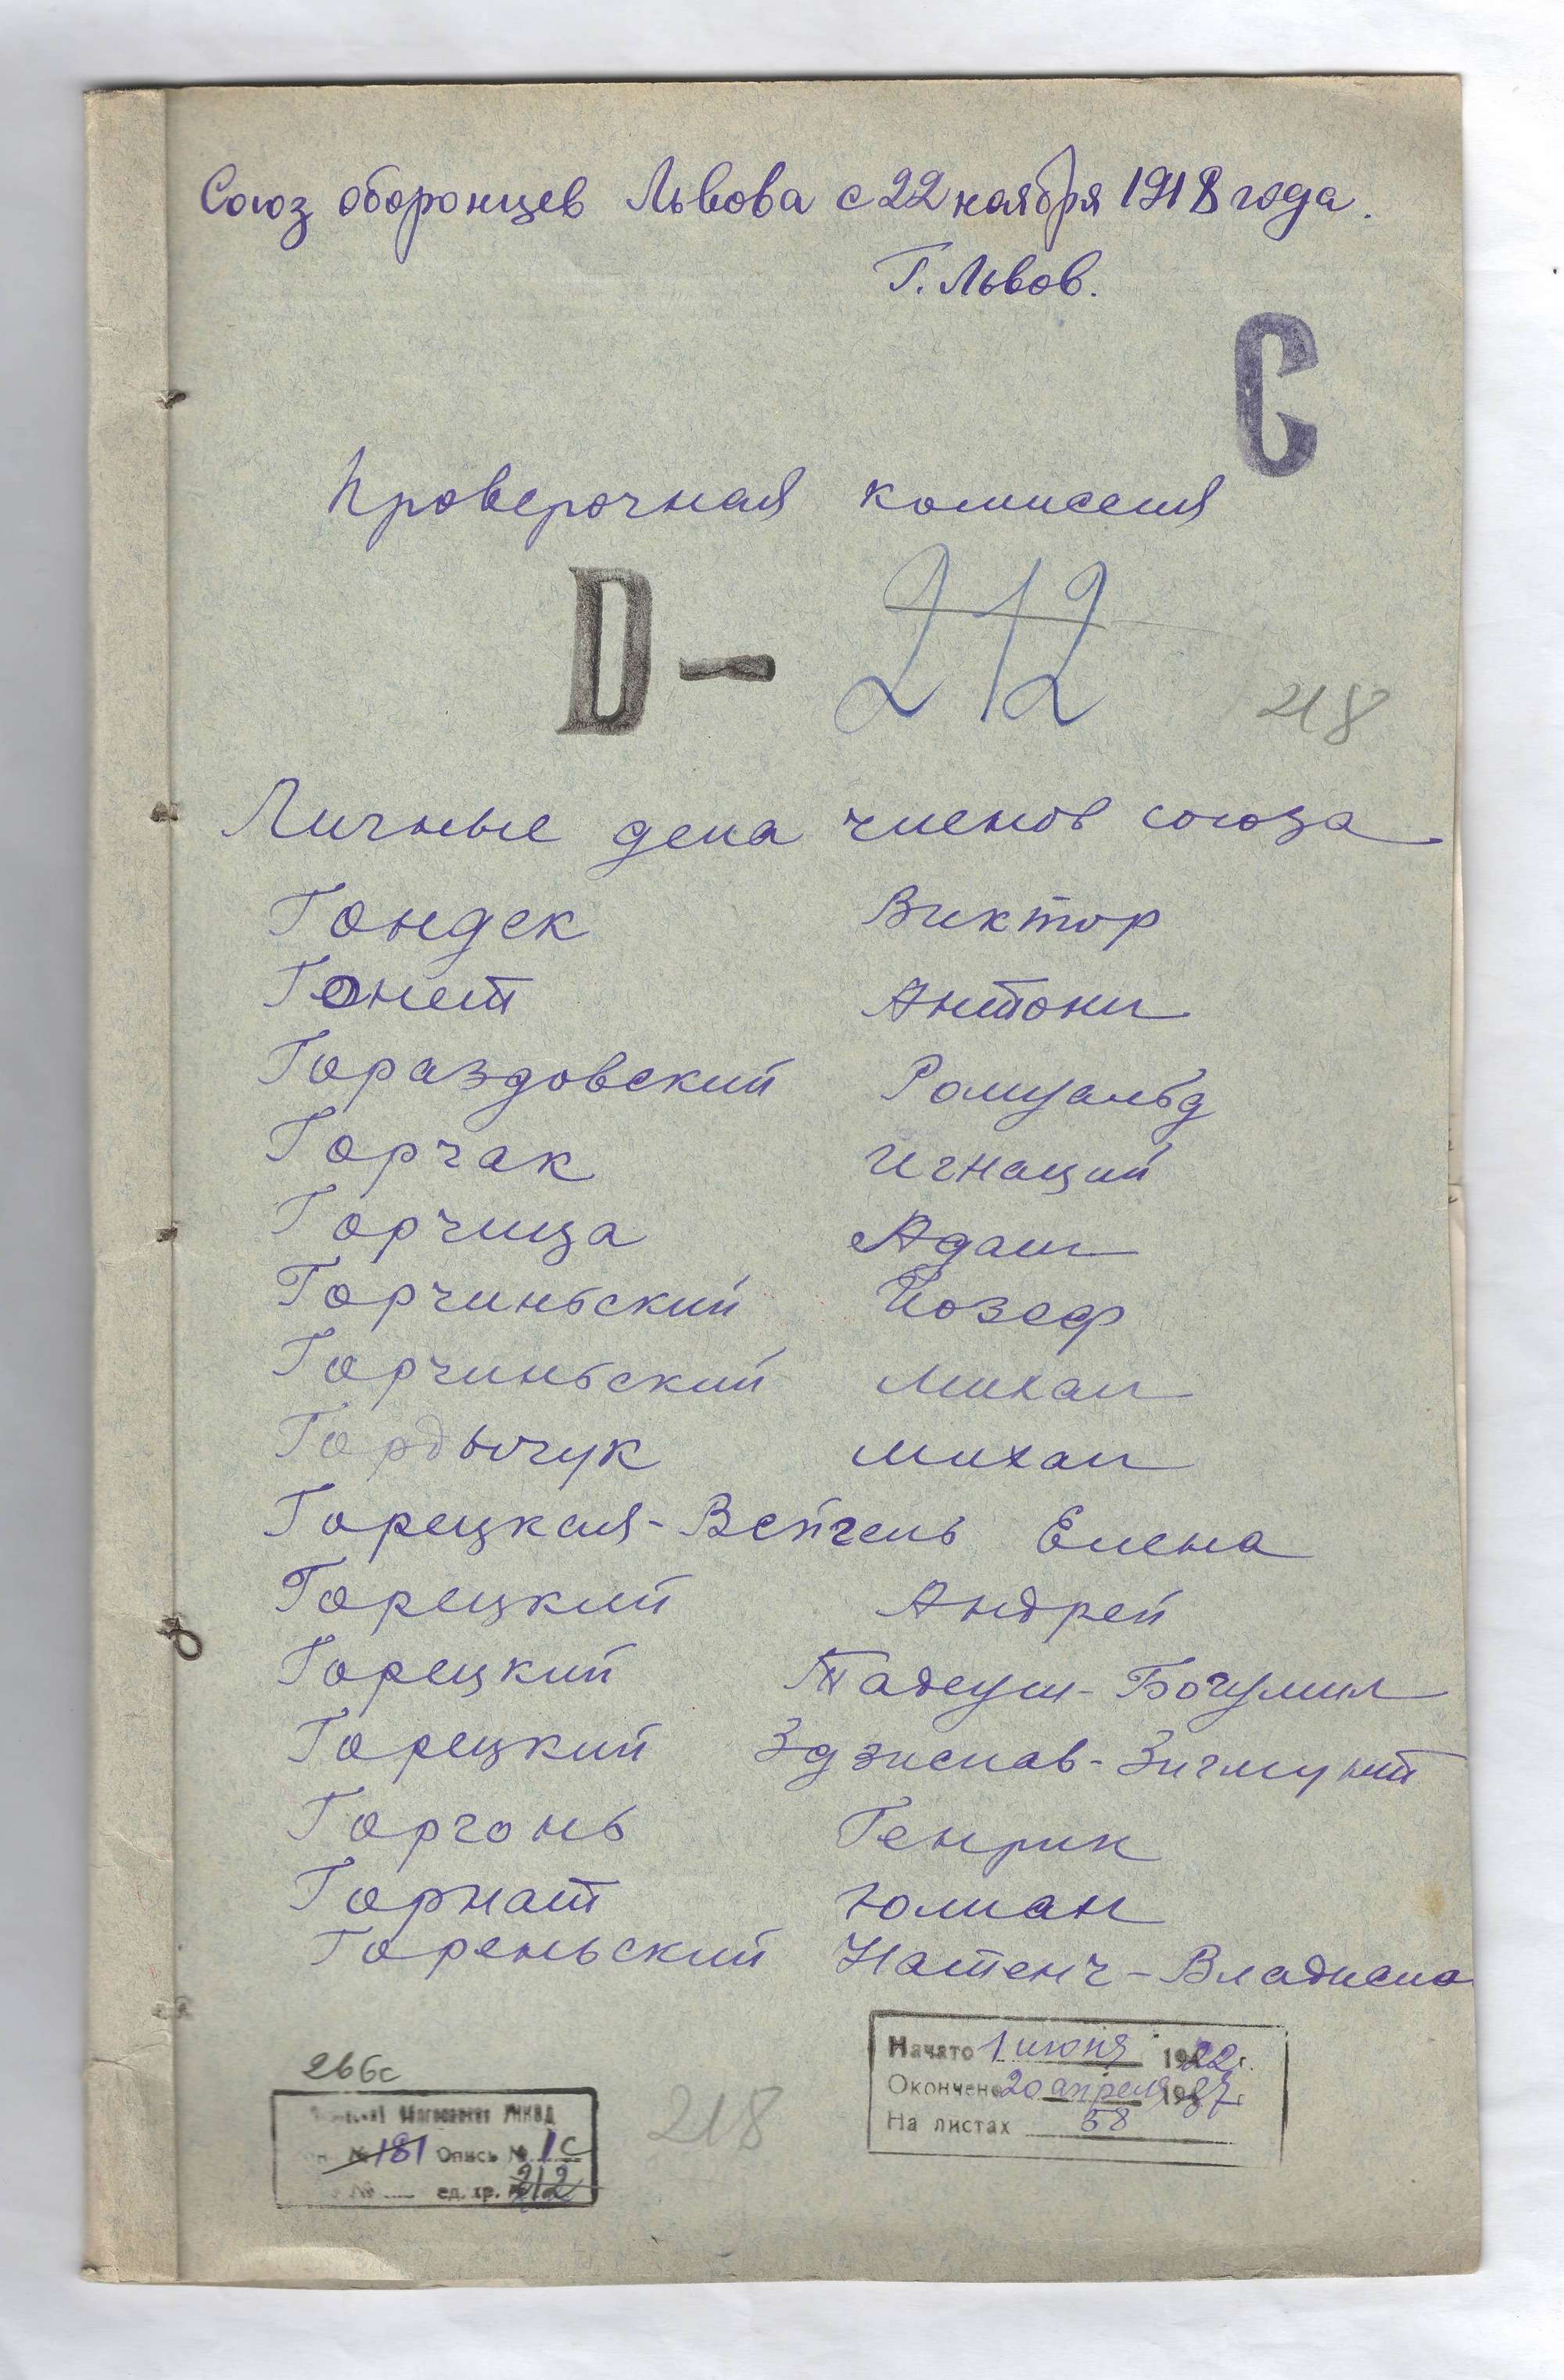 Союз оборонцев Львова с 22 ноября 1918 года.
Г. Львов.
С
Проверочная комиссия
D - 212
218
Личные дела членов союза
Гондек Виктор
Гонет Антони
Гораздовский Ромуальд
Горчак Игнаций
Горчица Адам
Горчиньский Йозеф
Горчиньский Михал
Гордычук Михал
Горецкая-Вейгель Елена
Горецкий Андрей
Горецкий Тадеуш-Богумил
Горецкий Здзислав-Зигмунт
Горгонь Генрик
Горнат Юлиан
Гореньский Натенч-Владисла
266с
УНКВД
№ 181 Опись № 1с
№ ед. хр. 212
218
Начато 1 июня 1922 г.
Окончено 20 апреля 1937 г.
На листах 58